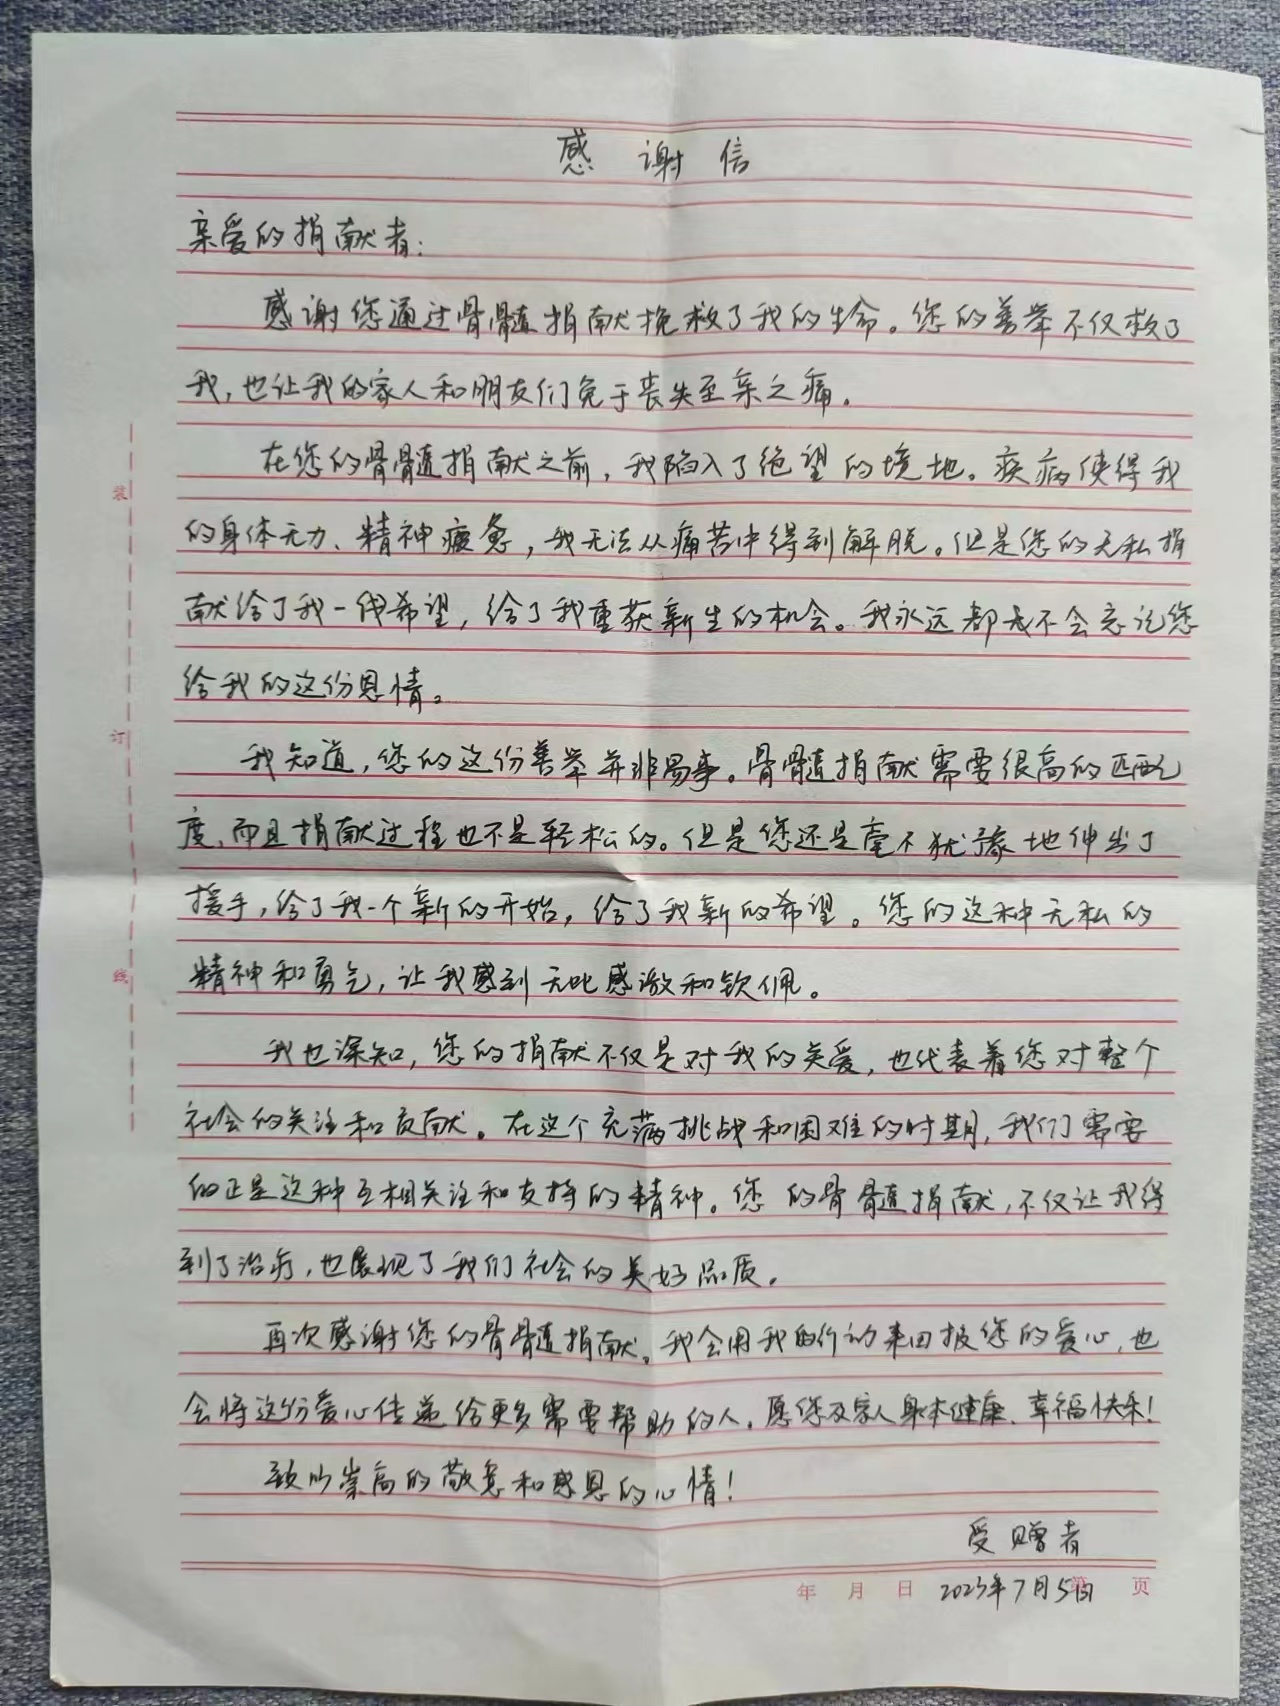 感谢信
亲爱的捐献者：
感谢您通过骨髓捐献挽救了我的生命。您的善举不仅救了
我，也让我的家人和朋友们免于丧失至亲之痛。
在您的骨髓捐献之前，我陷入了绝望的境地。疾病使得我
的身体无力、精神疲惫，我无法从痛苦中得到解脱。但是您的无私捐
献给了我一线希望，给了我重获新生的机会。我永远都不会忘记您
给我的这份恩情。
我知道，您的这份善举并非易事。骨髓捐献需要很高的匹配
度，而且捐献过程也不是轻松的。但是您还是毫不犹豫地伸出了
援手，给了我一个新的开始，给了我新的希望。您的这种无私的
精神和勇气，让我感到无比感激和钦佩。
我也深知，您的捐献不仅是对我的关爱，也代表着您对整个
社会的关注和贡献。在这个充满挑战和困难的时期，我们需要
的正是这种互相关注和支持的精神。您的骨髓捐献，不仅让我得
到了治疗，也展现了我们社会的美好品质。
再次感谢您的骨髓捐献。我会用我的行动来回报您的爱心，也
会将这份爱心传递给更多需要帮助的人。愿您及家人身体健康、幸福快乐！
致以崇高的敬意和感恩的心情！
受赠者
年 月 日 2023年7月5日 第 页
装
订
线